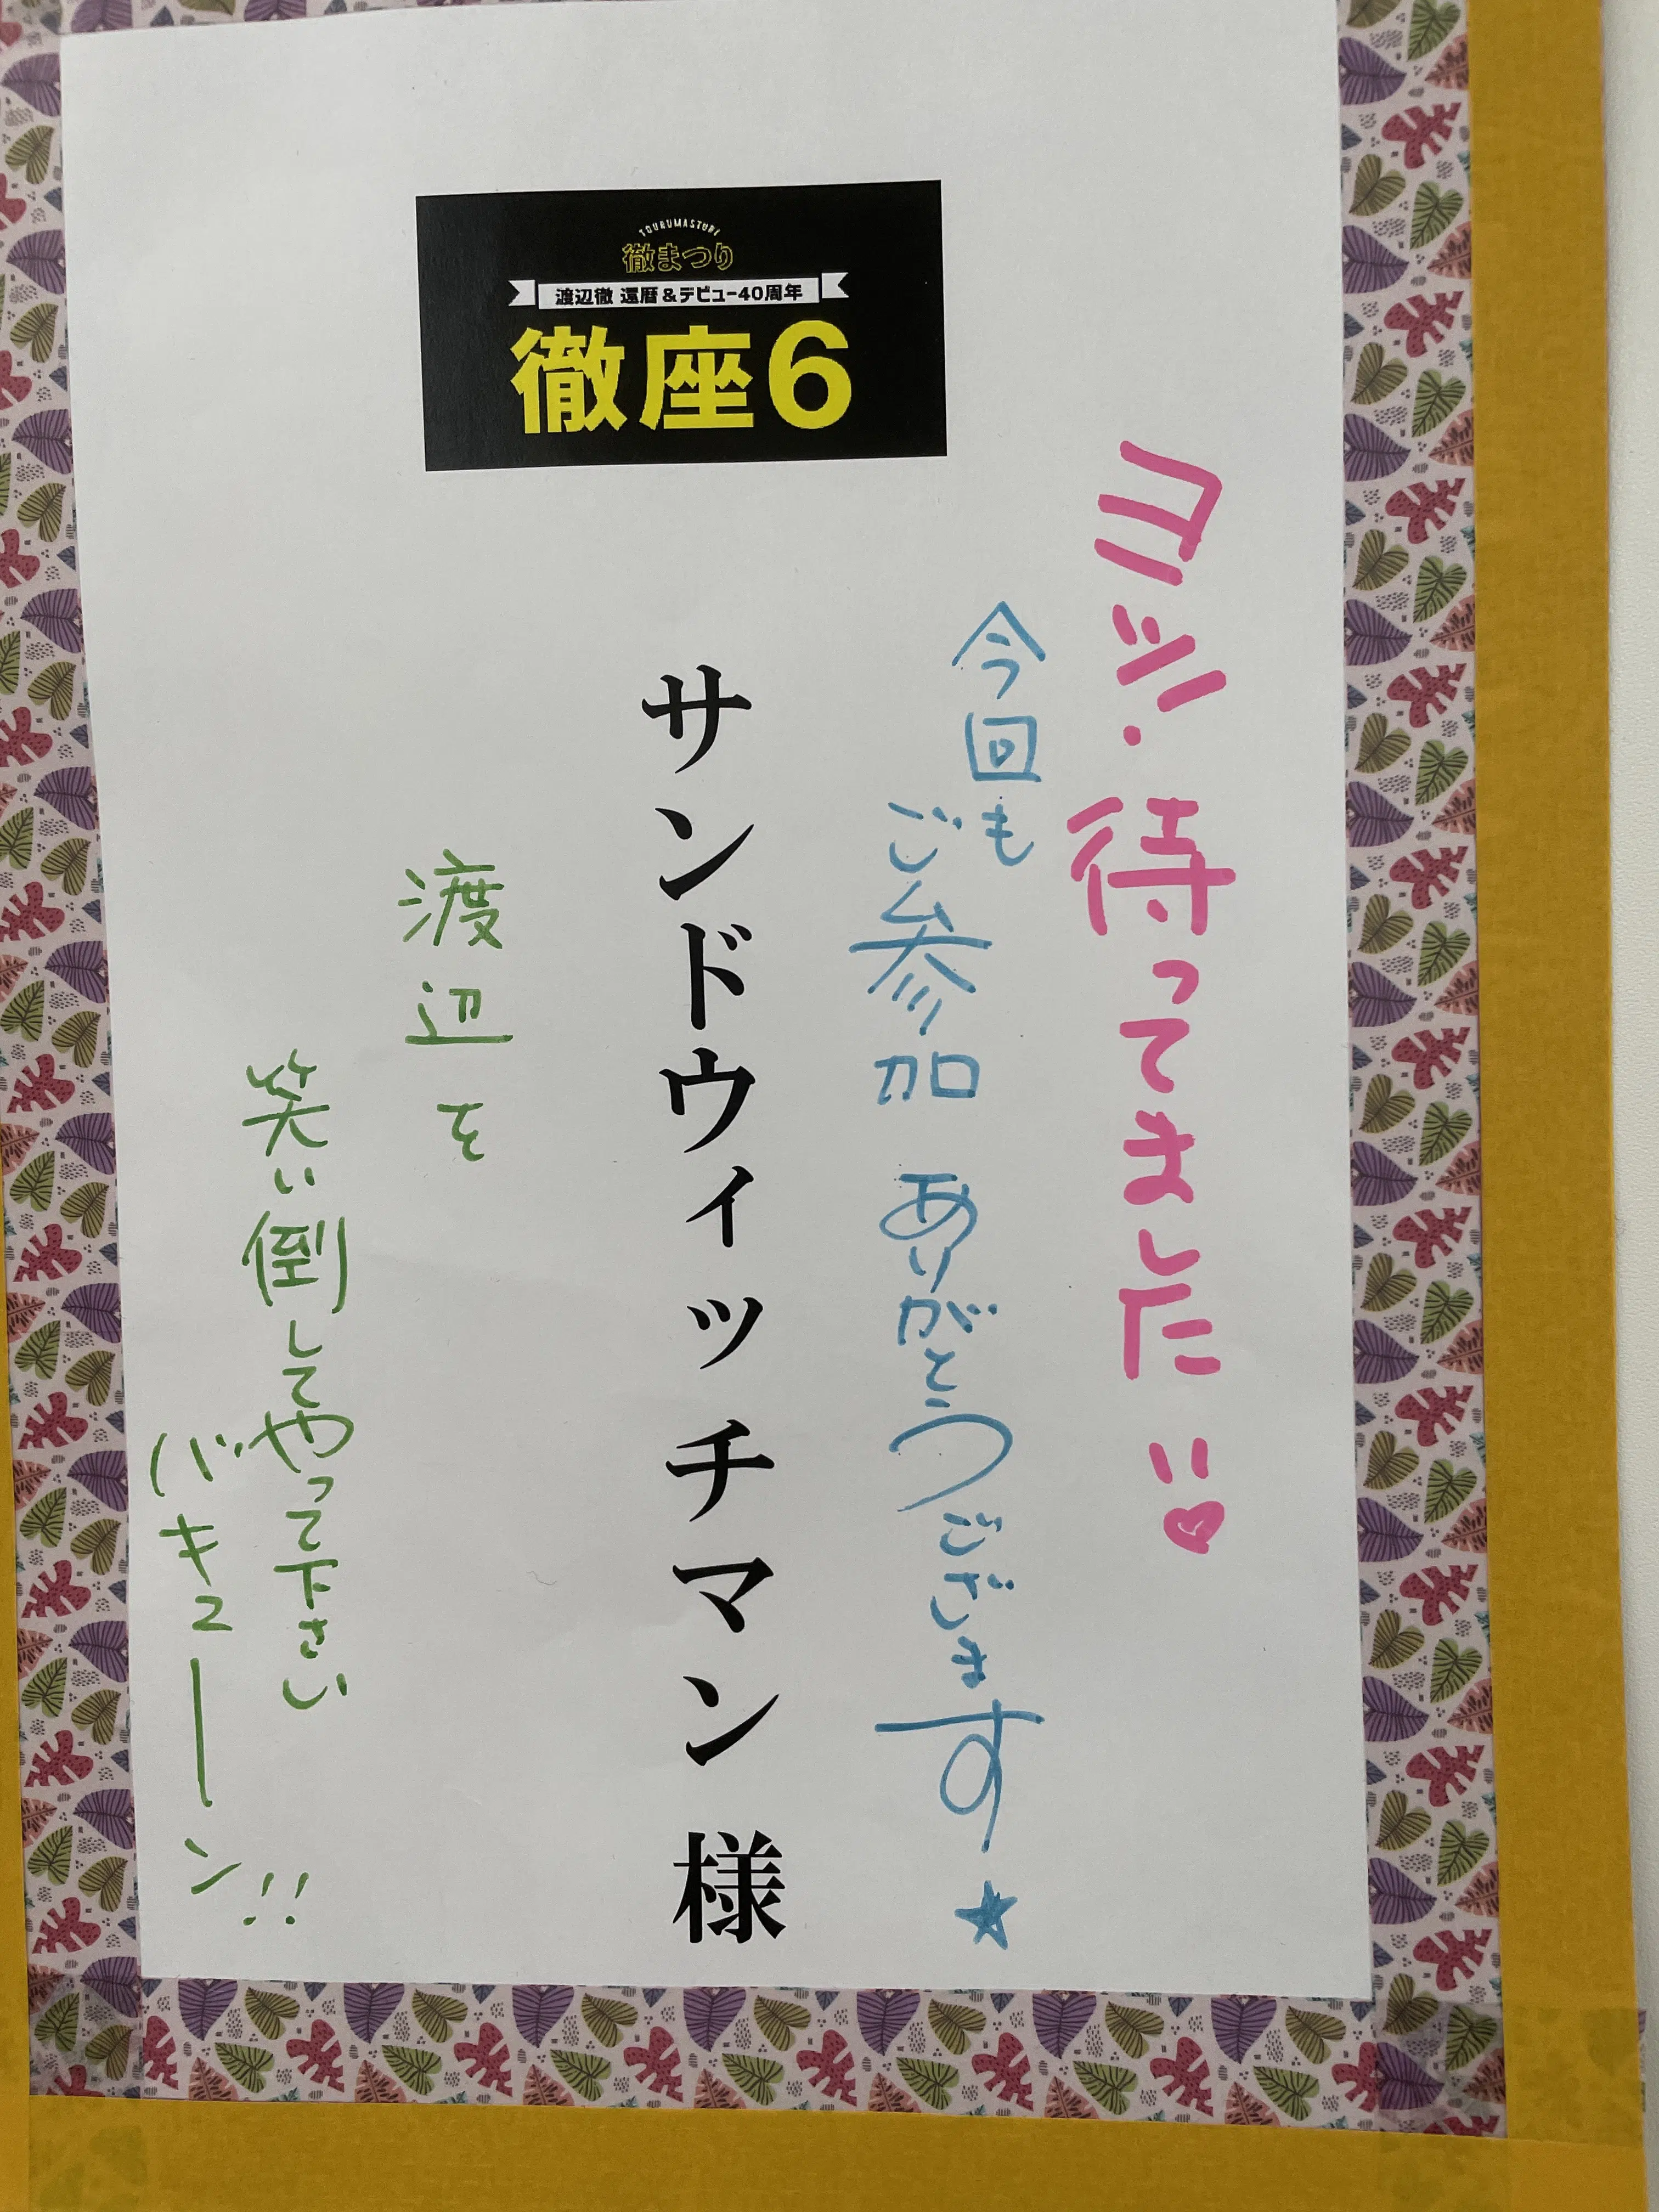 TOURUMASTURI
徹まつり
渡辺徹 還暦&デビュー40周年
徹座6
ヨッ・待ってました!!♥
今回も
ご参加ありがとうございます★
サンドウィッチマン様
渡辺を
笑い倒してやって下さい
バキューーン!!